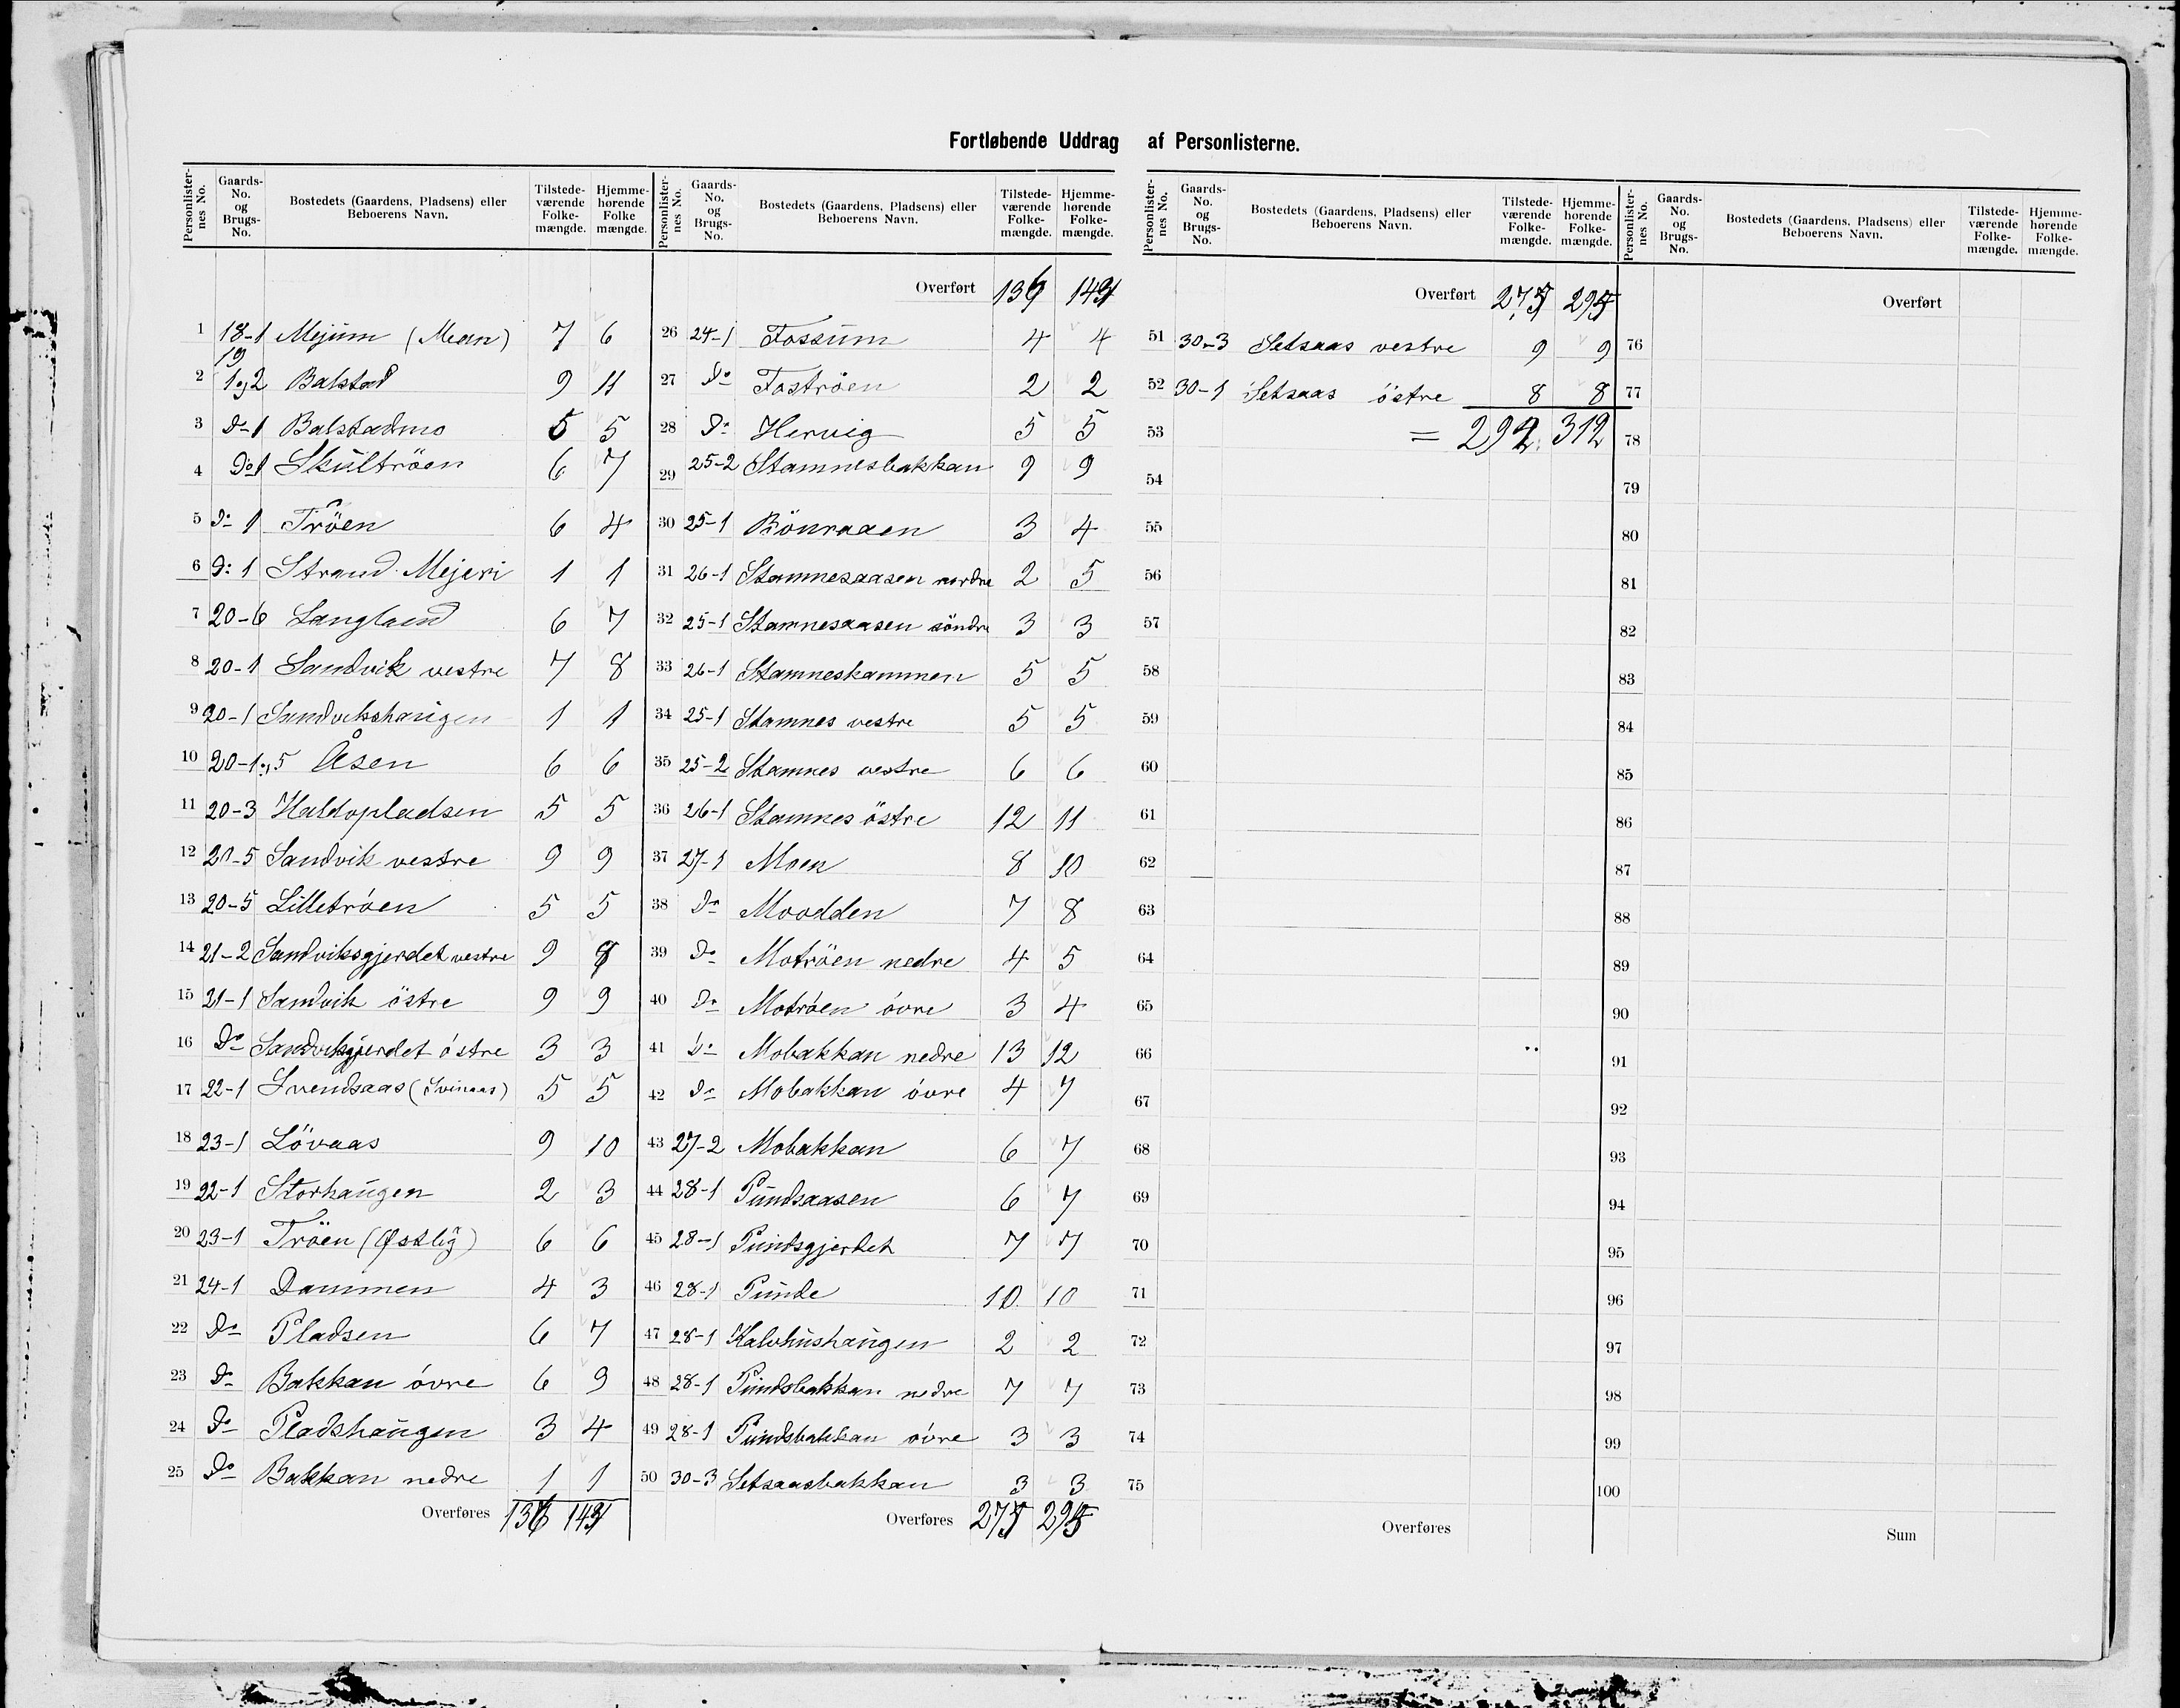 Fortløbende Uddrag af Personlisterne.
Personlisternes No. Gaards-No. og Brugs-No. Bostedets (Gaardens, Pladsens) eller Beboerens Navn. Tilstedeværende Folkemængde. Hjemmehørende Folke mængde.
1 18-1 Mejum (Mean) 7 6
2 19 1 og 2 Balstad 9 11
3 Do 1 Balstadmo 5 5
4 Do 1 Skultröen 6 7
5 Do 1 Tröen 6 4
6 Do 1 Strand Mejeri 1 1
7 20-6 Langland 6 7
8 20-1 Sandvik vestre 7 8
9 20-1 Sandvikshaugen 1 1
10 20-1 og 5 Åsen 6 6
11 20-3 Haldopladsen 5 5
12 20-5 Sandvik vestre 9 9
13 20-5 Lilletröen 5 5
14 21-2 Sandviksgjerdet vestre 9
15 21-1 Sandvik östre 9 9
16 Do Sandviksgjerdet östre 3 3
17 22-1 Svendsaas (Svinaas) 5 5
18 23-1 Lövaas 9 10
19 22-1 Storhaugen 2 3
20 23-1 Tröen (Østlig) 6 6
21 24-1 Dammen 4 3
22 Do Pladsen 6 7
23 Do Bakkan övre 6 9
24 Do Pladshaugen 3 4
25 Do Bakkan nedre 1 1
Overføres 136 149
Personlisternes No. Gaards-No. og Brugs-No. Bostedets (Gaardens, Pladsens) eller Beboerens Navn. Tilstedeværende Folkemængde. Hjemmehørende Folkemængde.
Overført 136 149
26 24-1 Fossum 4 4
27 Do Foströen 2 2
28 Do Hervig 5 5
29 25-2 Stamnesbakkan 9 9
30 25-1 Bönraaen 3 4
31 26-1 Stamnesaasen nordre 2 5
32 25-1 Stamnesaasen söndre 3 3
33 26-1 Stamneskammen 5 5
34 25-1 Stamnes vestre 5 5
35 25-2 Stamnes vestre 6 6
36 26-1 Stamnes östre 12 11
37 27-1 Moen 8 10
38 Do Moodden 7 8
39 Do Motröen nedre 4 5
40 Do Motröen övre 3 4
41 Do Mobakkan nedre 13 12
42 Do Mobakkan övre 4 7
43 27-2 Mobakkan 6 7
44 28-1 Pundsaasen 6 7
45 28-1 Pundsgjerdet 7 7
46 28-1 Punde 10 10
47 28-1 Kalvhushaugen 2 2
48 28-1 Pundsbakkan nedre 7 7
49 28-1 Pundsbakkan övre 3 3
50 30-3 Setsaasbakkan 3 3
Overføres 275 295
Personlisternes No. Gaards-No. og Brugs-No. Bostedets (Gaardens, Pladsens) eller Beboerens Navn. Tilstedeværende Folkemængde. Hjemmehørende Folkemængde.
Overført 275 295
51 30-3 Setsaas vestre 9 9
52 30-1 Setsaas östre 8 8
53 = 292 312
54
55
56
57
58
59
60
61
62
63
64
65
66
67
68
69
70
71
72
73
74
75
Overføres
Personlisternes No. Gaards-No. og Brugs-No. Bostedets (Gaardens, Pladsens) eller Beboerens Navn. Tilstedeværende Folkemængde. Hjemmehørende Folkemængde.
Overført
76
77
78
79
80
81
82
83
84
85
86
87
88
89
90
91
92
93
94
95
96
97
98
99
100
Sum